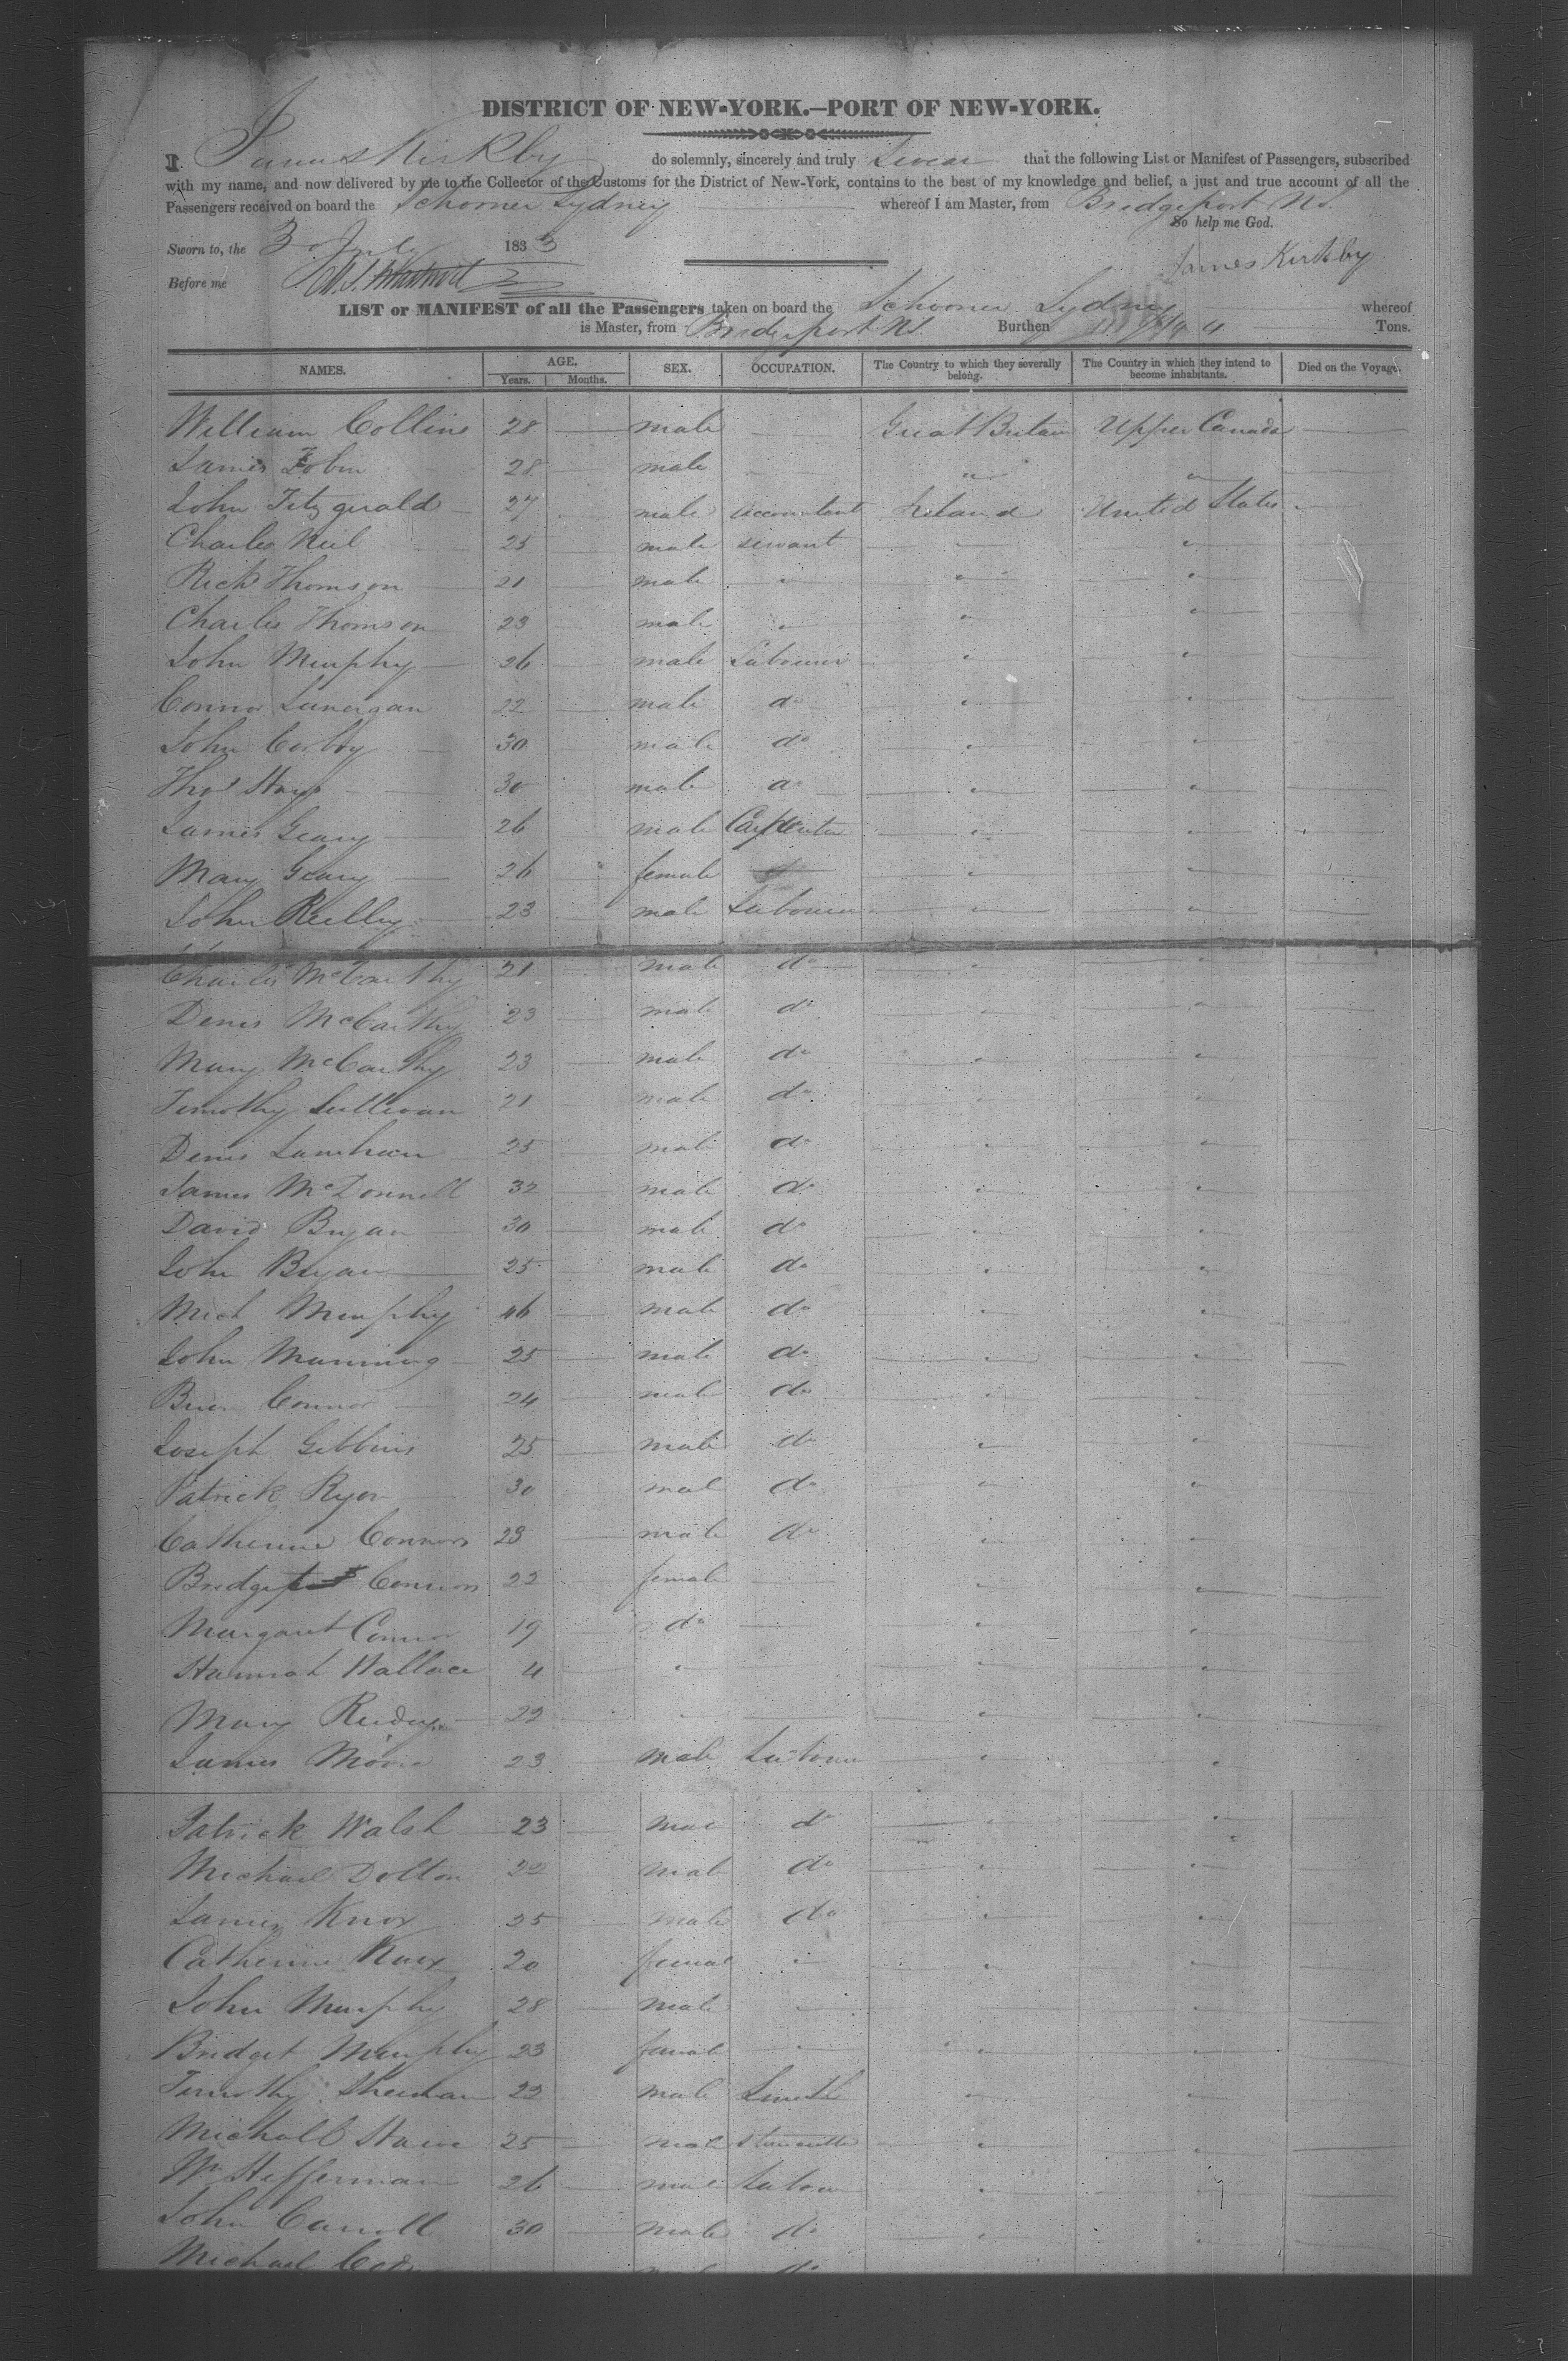 DISTRICT OF NEW-YORK.—PORT OF NEW-YORK.
I James Kirkby do solemnly, sincerely and truly Swear that the following List or Manifest of Passengers, subscribed
with my name, and now delivered by me to the Collector of the Customs for the District of New-York, contains to the best of my knowledge and belief, a just and true account of all the
Passengers received on board the Schooner Sydney whereof I am Master, from Bridgeport NS.
So help me God.
Sworn to, the 3 July 1833
James Kirkby
Before me
LIST or MANIFEST of all the Passengers taken on board the Schooner Sydney whereof
is Master, from Bridgeport NS. Burthen Tons.
NAMES. AGE. Years. Months. SEX. OCCUPATION. The Country to which they severally belong. The Country in which they intend to become inhabitants. Died on the Voyage.
William Collins 28 male Great Britain Upper Canada
James Tobin 28 male " "
John Fitzgerald 27 male accountant Ireland United States
Charles Neil 25 male servant " "
Richd Thomson 21 male " " "
Charles Thomson 23 male " " "
John Murphy 26 male Labourer " "
Connor Lanergan 22 male do " "
John Corboy 30 male do " "
Thos Hays 30 male do " "
James Geary 26 male Carpenter " "
Mary Geary 26 female " "
John Reilly 23 male Labourer " "
Charles McCarthy 21 male do " "
Denis McCarthy 23 male do " "
Mary McCarthy 23 male do " "
Timothy Sullivan 21 male do " "
Denis 25 male do " "
James McDonnell 32 male do " "
David Bryan 30 male do " "
John Bryan 25 male do " "
Mich Murphy 46 male do " "
John Manning 25 male do " "
Brien Connor 24 male do " "
Joseph Gibbins 25 male do " "
Patrick Ryan 30 male do " "
Catherine Connors 23 male do " "
Bridget Connors 22 female " "
Margaret Connor 19 do " "
Hannah Wallace 4 " " "
Mary 22 " " "
James Moore 23 male Labourer " "
Patrick Walsh 23 male do " "
Michael Dolton 22 male do " "
James Knox 25 male do " "
Catherine Knox 20 female " " "
John Murphy 28 male " " "
Bridget Murphy 23 female " " "
Timothy Sheehan 22 male Smith " "
Michall 25 male stonecutter " "
Wm Heffernan 26 male Labour " "
John Carroll 30 male do " "
Michael male do